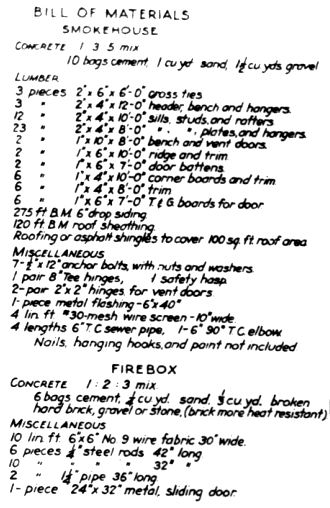 BILL OF MATERIALS
SMOKEHOUSE
CONCRETE 1 3 5 mix
10 bags cement, 1 cu yd sand, 1½ cu yds gravel
LUMBER
3 pieces 2"x 6"x 6'-0" cross ties
3 " 2"x 4"x 12'-0" header, bench and hangers
12 " 2"x 4"x 10'-0" sills, studs, and rafters
23 " 2"x 4"x 8'-0" " " plates, and hangers
2 " 1"x 10"x 8'-0" bench and vent doors
2 " 1"x 6"x 10'-0" ridge and trim
2 " 1"x 6"x 7'-0" door battens
6 " 1"x 4"x 10'-0" corner boards and trim
6 " 1"x 4"x 8'-0" trim
6 " 1"x 6"x 7'-0" T&G boards for door
275 ft. B.M. 6" drop siding
120 ft. B.M. roof sheathing
Roofing or asphalt shingles to cover 100 sq. ft. roof area
MISCELLANEOUS
7-½"x 12" anchor bolts, with nuts and washers
1 pair 8" Tee hinges, 1 safety hasp
2-pair 2"x 2" hinges for vent doors
1-piece metal flashing-6"x 40"
4 lin. ft. #30-mesh wire screen-10" wide
4 lengths 6" T.C. sewer pipe, 1-6" 90° T.C. elbow
Nails, hanging hooks, and paint not included
FIREBOX
CONCRETE 1:2:3 mix
6 bags cement, cu yd. sand, cu yd. broken
hard brick, gravel or stone, (brick more heat resistant)
MISCELLANEOUS
10 lin. ft. 6"x 6" No 9 wire fabric 30" wide
6 pieces steel rods 42" long
10 " " " 32" "
2 " 1¼" pipe 36" long
1-piece 24"x 32" metal, sliding door